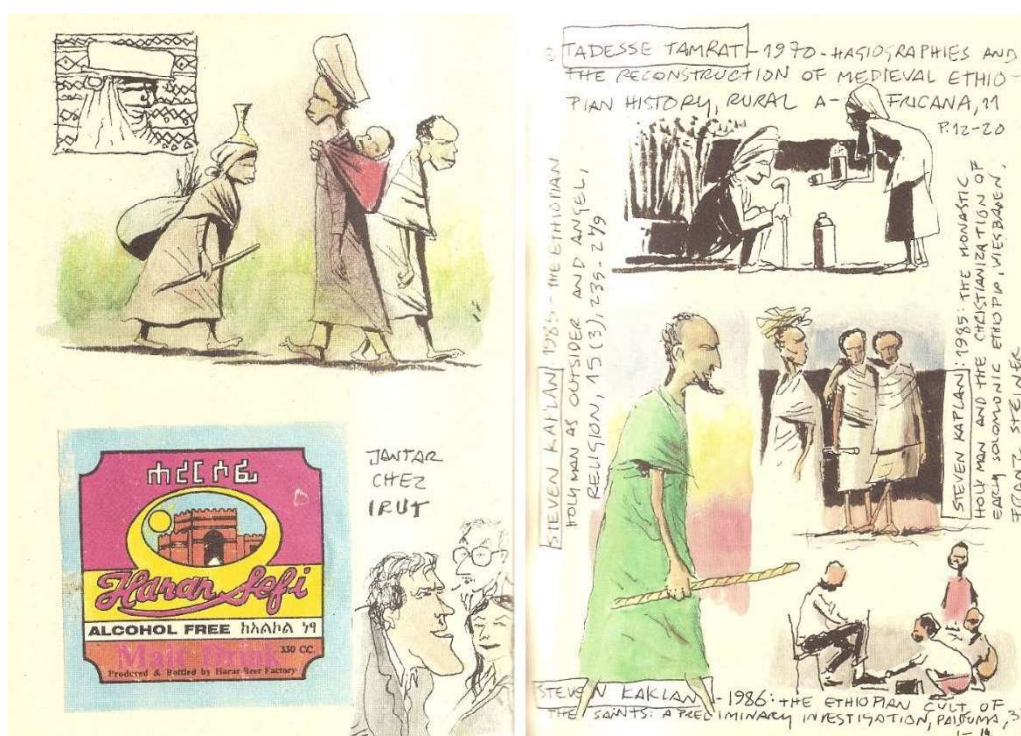 JANTAR
CHEZ
IRUT
ሐረር ሶፊ
Harar Sofi
ALCOHOL FREE ከአልኮል ነፃ
Malt Drink 330 CC.
Produced & Bottled by Harar Beer Factory
TADESSE TAMRAT - 1970 - HAGIOGRAPHIES AND
THE RECONSTRUCTION OF MEDIEVAL ETHIO-
PIAN HISTORY, RURAL A- FRICANA, 11
P. 12-20
STEVEN KAPLAN: 1985 - THE ETHIOPIAN
HOLY MAN AS OUTSIDER AND ANGEL,
RELIGION, 15 (3), 235-249
STEVEN KAPLAN: 1985: THE MONASTIC
HOLY MAN AND THE CHRISTIANIZATION OF
EARLY SOLOMONIC ETHIOPIA, WIESBADEN,
FRANZ STEINER
STEVEN KAKLAN - 1986: THE ETHIOPIAN CULT OF
THE SAINTS: A PRELIMINARY INVESTIGATION, PAIDUMA, 3